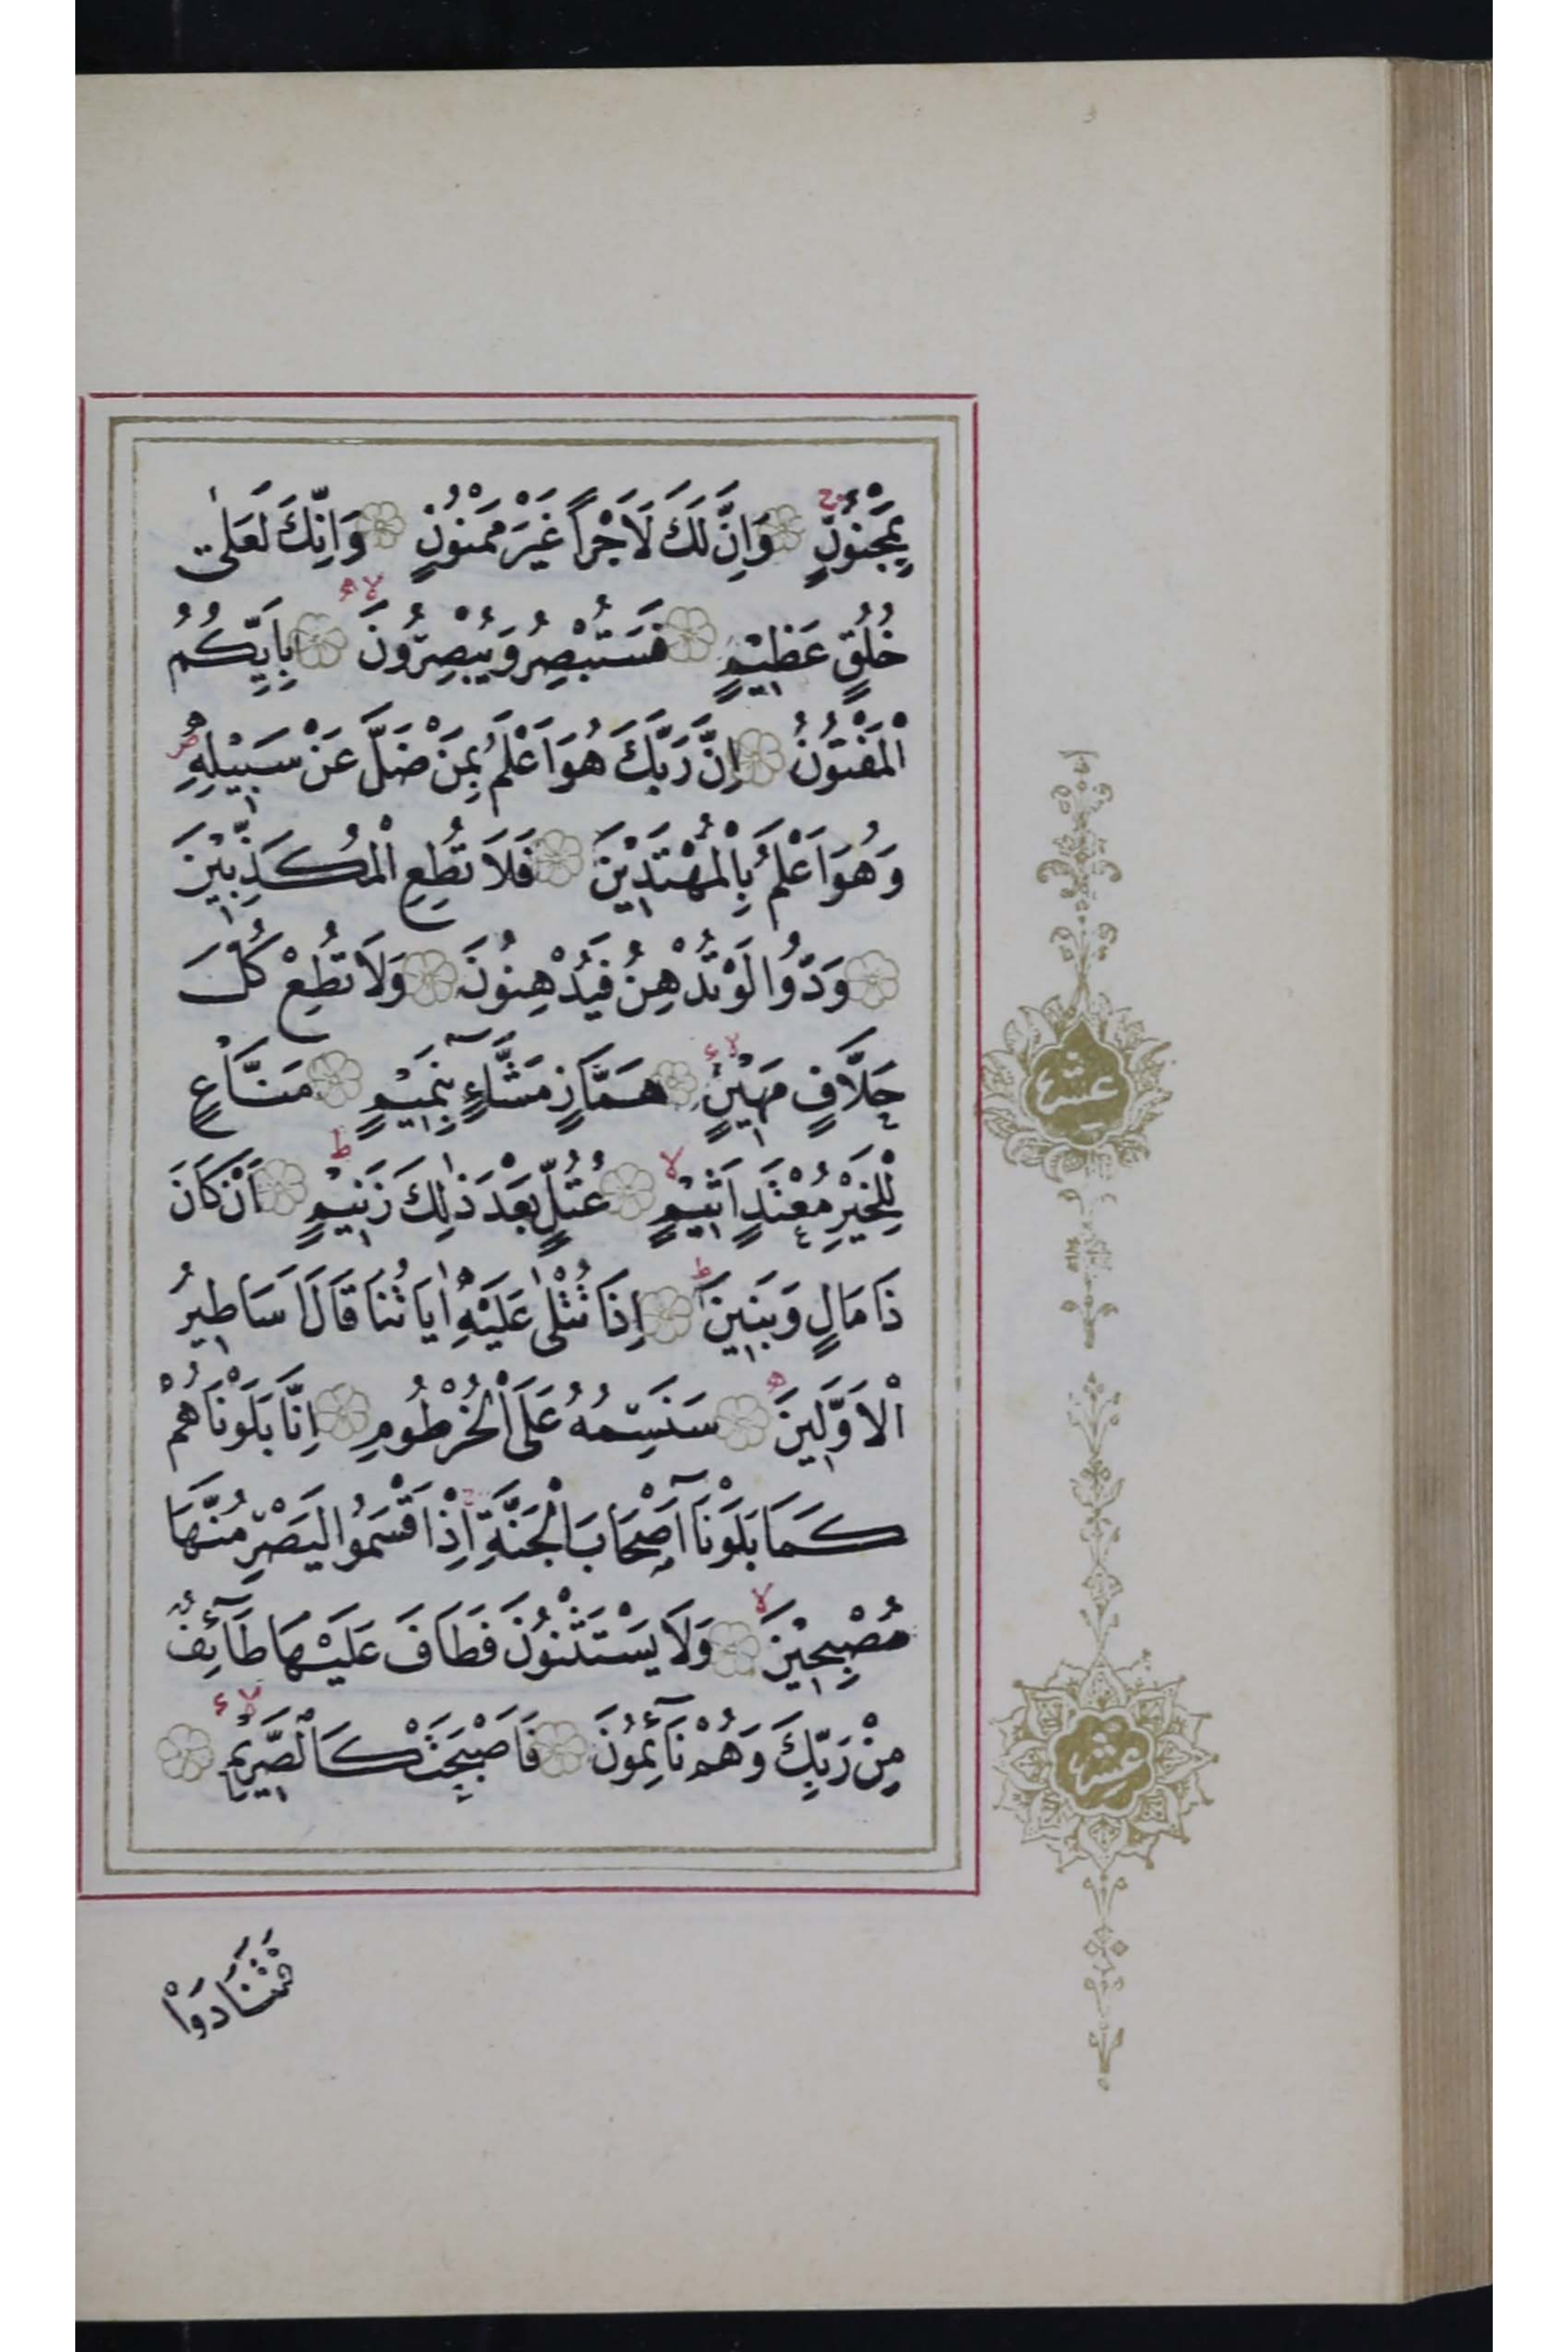 بِمَجْنُونٍ وَاِنَّ لَكَ لَاَجْراً غَيْرَ مَمْنُونٍ وَاِنَّكَ لَعَلٰى
خُلُقٍ عَظِيْمٍ فَسَتُبْصِرُ وَيُبْصِرُونَ بِاَيِّكُمُ
الْمَفْتُوْنُ اِنَّ رَبَّكَ هُوَ اَعْلَمُ بِمَنْ ضَلَّ عَنْ سَبِيْلِهِ
وَهُوَ اَعْلَمُ بِالْمُهْتَدِيْنَ فَلَا تُطِعِ الْمُكَذِّبِيْنَ
وَدُّوا لَوْ تُدْهِنُ فَيُدْهِنُونَ وَلَا تُطِعْ كُلَّ
حَلَّافٍ مَهِيْنٍ هَمَّازٍ مَشَّاءٍ بِنَمِيْمٍ مَنَّاعٍ
لِلْخَيْرِ مُعْتَدٍ اَثِيْمٍ عُتُلٍّ بَعْدَ ذٰلِكَ زَنِيْمٍ اَنْ كَانَ
ذَا مَالٍ وَبَنِينَ اِذَا تُتْلٰى عَلَيْهِ اٰيَاتُنَا قَالَ اَسَاطِيرُ
الْاَوَّلِينَ سَنَسِمُهُ عَلَى الْخُرْطُومِ اِنَّا بَلَوْنَاهُمْ
كَمَا بَلَوْنَا اَصْحَابَ الْجَنَّةِ اِذْ اَقْسَمُوا لَيَصْرِمُنَّهَا
مُصْبِحِيْنَ وَلَا يَسْتَثْنُوْنَ فَطَافَ عَلَيْهَا طَآئِفٌ
مِنْ رَبِّكَ وَهُمْ نَآئِمُوْنَ فَاَصْبَحَتْ كَالصَّرِيْمِ
فَتَنَادَوْا
عشر
عشر